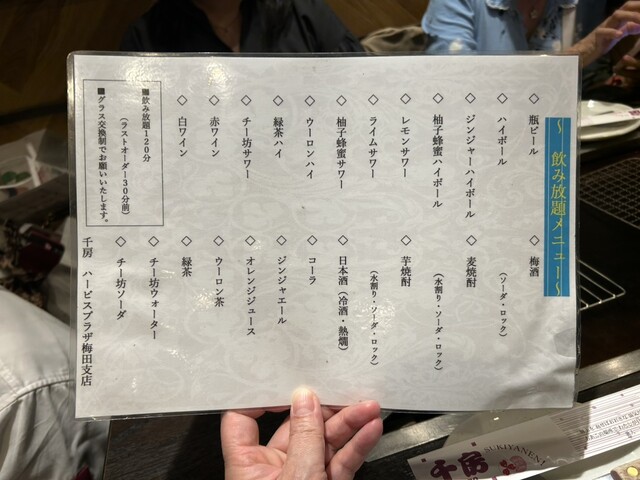 ～ 飲み放題メニュー ～
◇ 瓶ビール
◇ ハイボール
◇ ジンジャーハイボール
◇ 柚子蜂蜜ハイボール
◇ レモンサワー
◇ ライムサワー
◇ 柚子蜂蜜サワー
◇ ウーロンハイ
◇ 緑茶ハイ
◇ チー坊サワー
◇ 赤ワイン
◇ 白ワイン
◇ 梅酒
（ソーダ・ロック）
◇ 麦焼酎
（水割り・ソーダ・ロック）
◇ 芋焼酎
（水割り・ソーダ・ロック）
◇ 日本酒（冷酒・熱燗）
◇ コーラ
◇ ジンジャエール
◇ オレンジジュース
◇ ウーロン茶
◇ 緑茶
◇ チー坊ウォーター
◇ チー坊ソーダ
■飲み放題120分
（ラストオーダー30分前）
■グラス交換制でお願いいたします。
千房 ハービスプラザ梅田支店
千房
SUKIYANEN